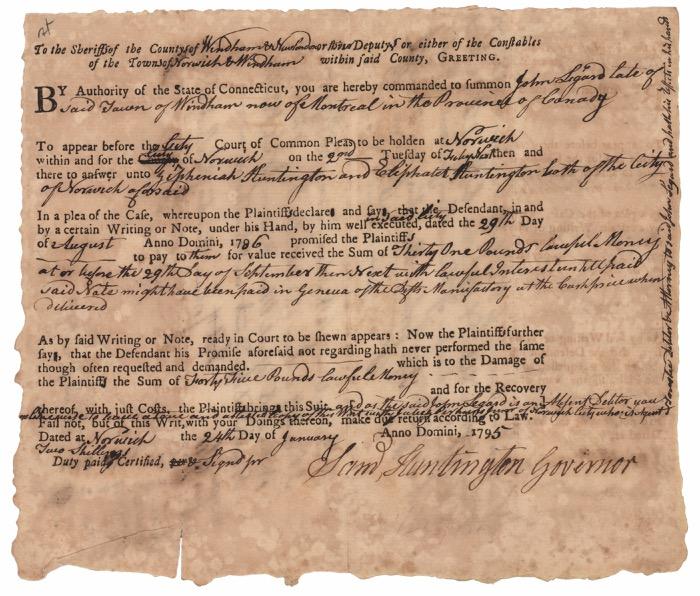 To the Sheriffs of the Countys of Windham & Newlondon or their Deputys or either of the Constables
of the Towns of Norwich & Windham within said County, GREETING.
BY Authority of the State of Connecticut, you are hereby commanded to summon John Legard late of
said Town of Windham now of Montreal in the Provence of Canady
To appear before the City Court of Common Pleas, to be holden at Norwich
within and for the City of Norwich on the 2nd Tuesday of then and
there to answer unto Huntington and Eliphalet Huntington both of the City
of Norwich aforesaid
In a plea of the Case, whereupon the Plaintiffs declare and say, that the Defendant, in and
in said City
by a certain Writing or Note, under his Hand, by him well executed, dated the 29th Day
of August Anno Domini, 1786 promised the Plaintiffs
to pay to them for value received the Sum of Thirty One Pounds lawful Money
at or before the 29th Day of September then Next with lawful Interest until paid
said Note might have been paid in Geneva of the Manifactory at the Cash price when
delivered
As by said Writing or Note, ready in Court to be shewn appears: Now the Plaintiffs further
say, that the Defendant his Promise aforesaid not regarding hath never performed the same
though often requested and demanded. which is to the Damage of
the Plaintiffs the Sum of Forty Five Pounds lawful Money
and for the Recovery
thereof, with just Costs, the Plaintiffs brings this Suit. and as the said John Legard is an Absent Debtor you
are likewise to leave a true and attested Copy of this Writ with of Norwich City who is Agent
Fail not, but of this Writ, with your Doings thereon, make due return according to Law.
Dated at Norwich the 24th Day of January Anno Domini, 1795
Two Shillings
Duty paid, Certified, Signd pr Saml Huntington Governor
Debtor Attorney to said John Legard and hath his Effects in his hand